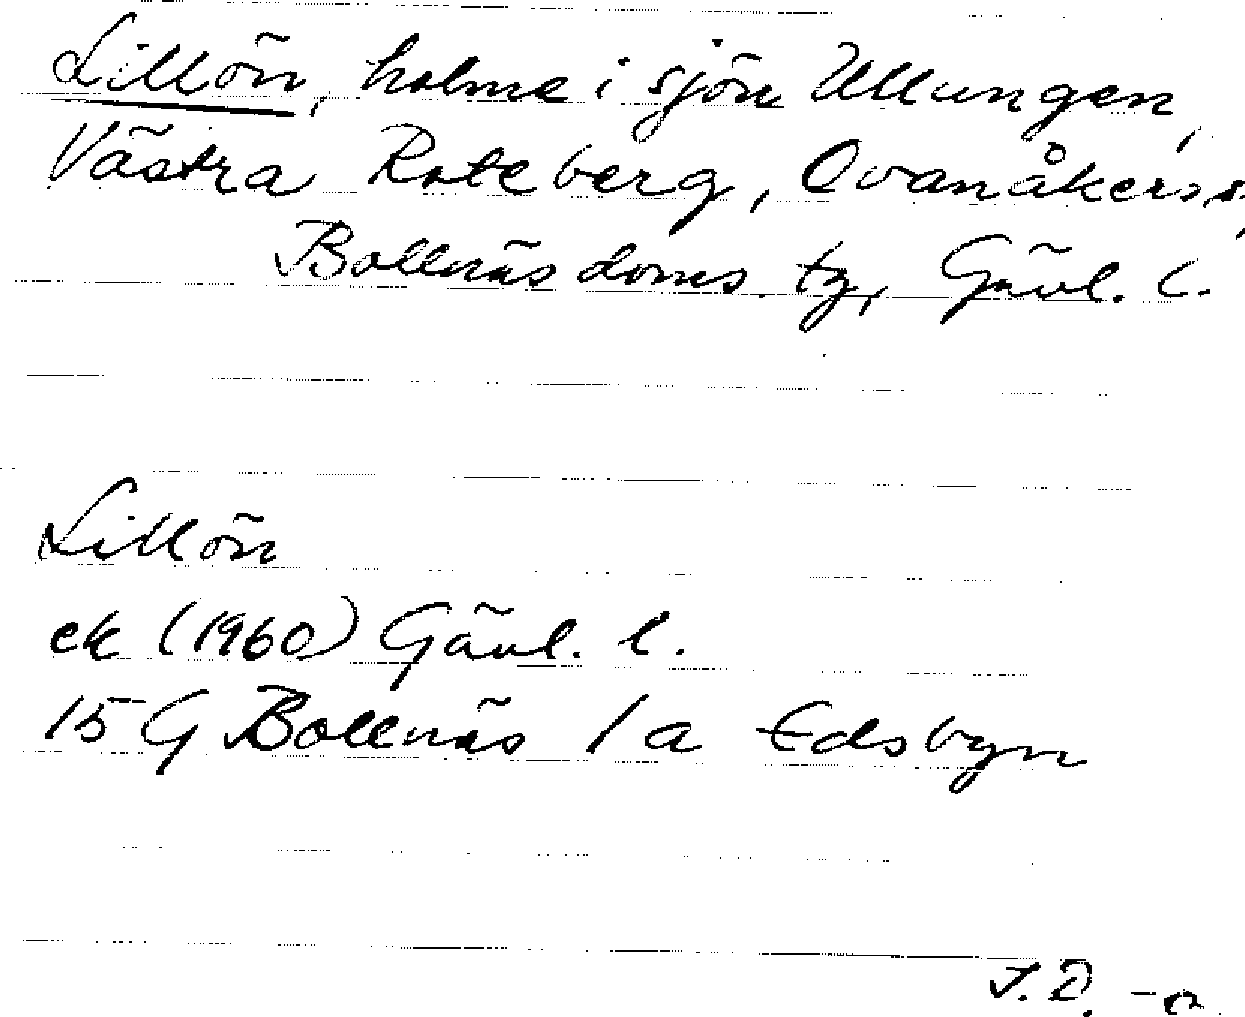 Lillön, holme i sjön Ullungen,
Västra Roteberg, Ovanåkers s.,
Bollnäs doms. tg, Gävl. l.
Lillön
ek (1960) Gävl. l.
15 G Bollnäs 1 a Edsbyn